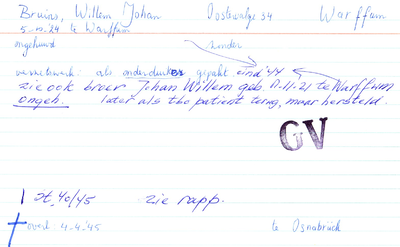 Bruins, Willem Johan Oosteinde 34 Warffum
5-10-24 te Warffum
ongehuwd zonder
verzetswerk: als onderduiker gepakt eind '44
zie ook broer Johan Willem geb 11.11.21 te Warffum
ongeh. later als tbc patient terug, maar hersteld.
GV
st. 40/45 zie rapp.
overl. 4-4-'45 te Osnabrück